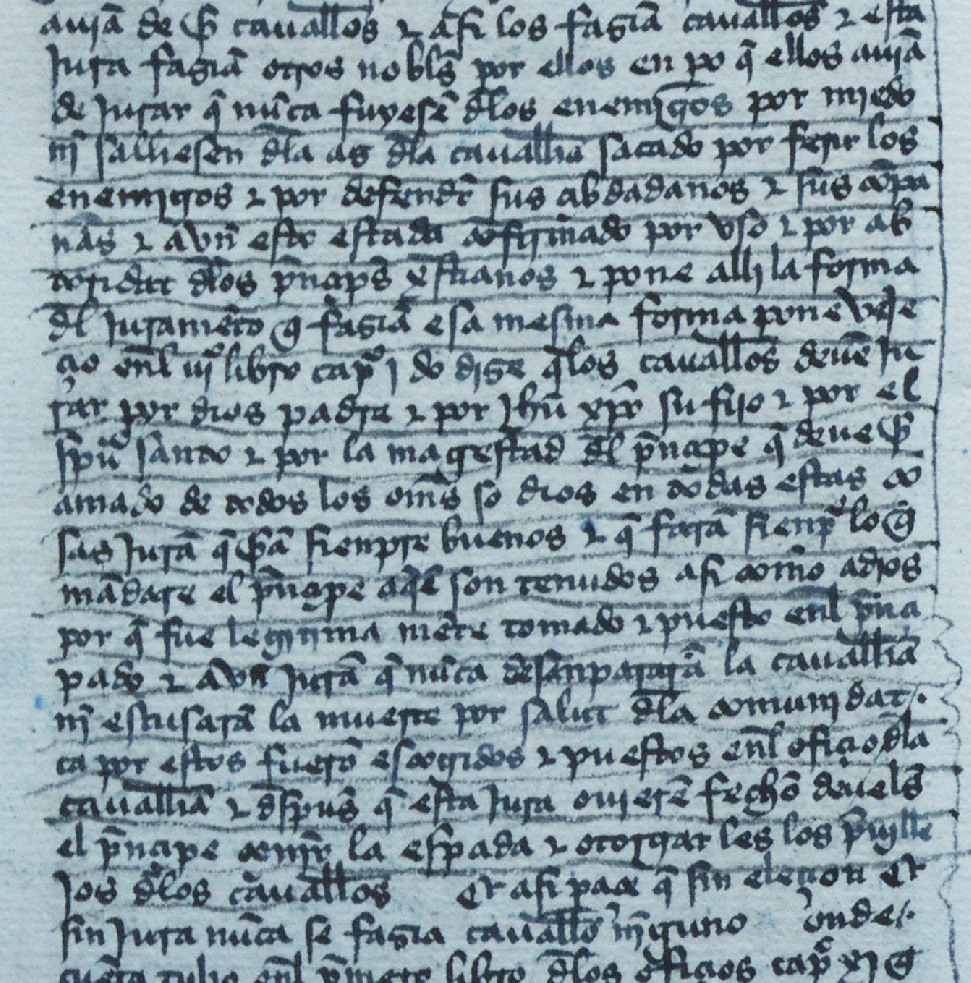 auiã de ser cauallos & asi los fagiã caualleros & esta
Jura fagiã otros nobls por ellos en po q̃ ellos auiã
de Jurar q̃ nũca fuyesẽ dlos enemigos por miedo
nj̃ salliesen dla az dla caualliã sacado por ferir los
enemigos & por defendr̃ sus cibdadanos & sus cõpa
nãs & avñ esto estada cõfirmado por vso & por ab
toridat dlos p̃ncips xp̃stianos & pone alli la forma
dl Juramẽto q̃ fagiã esa mesma forma pone vege
cio enl iiº libro capº j do dize q̃los cauallos deuẽ Ju
rar por dios padre & por Jhũ xp̃o su fijo & por el
spũ santo & por la magestad dl p̃ncipe q̃ deue ser
amado de todos los oms so dios en todas estas co
sas Jurã q̃ serã sienpre buenos & q̃ farã sienpr̃ lo q̃
mãdare el p̃ncipe aqel son tenudos asi como a dios
por q̃ fue legitima mẽte tomado & puesto enl p̃nci
pado & avn Jurã q̃ nũca desenpararã la caualliã
nj̃ escusarã la muerte por salut dla comunidat.
ca por estos fuerõ escogidos & puestos enl ofiçio dla
caualliã & dspus q̃ esta Jura ouierẽ fecho deuels
el p̃ncipe çenir la espada & otorgar les los p̃uille
Jos dlos cauallos Et asi paresçe q̃ sin eleçion Et
sin Jura nũca se fagia cauallo nj̃guno onde.
cuẽta tulio enl p̃mero libro dlos ofiçios capº xj q̃